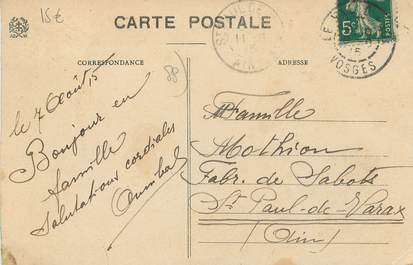 15€
CARTE POSTALE
CORRESPONDANCE
ADRESSE
le 7 Août 15
Bonjour en
famille
Salutations cordiales
Famille
Mothion
Fabr. de Sabots
St Paul-de-Varax
(Ain)
5c
POSTES
VOSGES
AIN